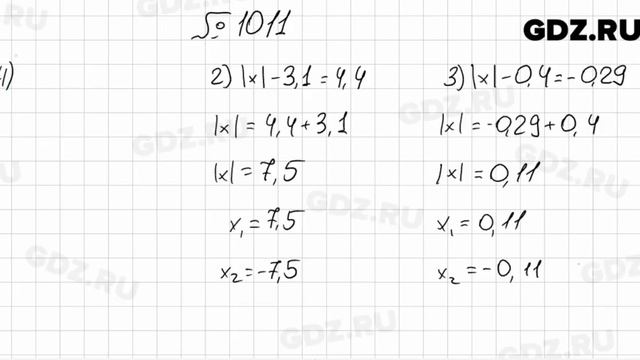 № 1011
GDZ.RU
1)
2) |x| - 3,1 = 4,4
|x| = 4,4 + 3,1
|x| = 7,5
x₁ = 7,5
x₂ = -7,5
3) |x| - 0,4 = -0,29
|x| = -0,29 + 0,4
|x| = 0,11
x₁ = 0,11
x₂ = -0,11
GDZ.RU
GDZ.RU
GDZ.RU
GDZ.RU
GDZ.RU
GDZ.RU
GDZ.RU
GDZ.RU